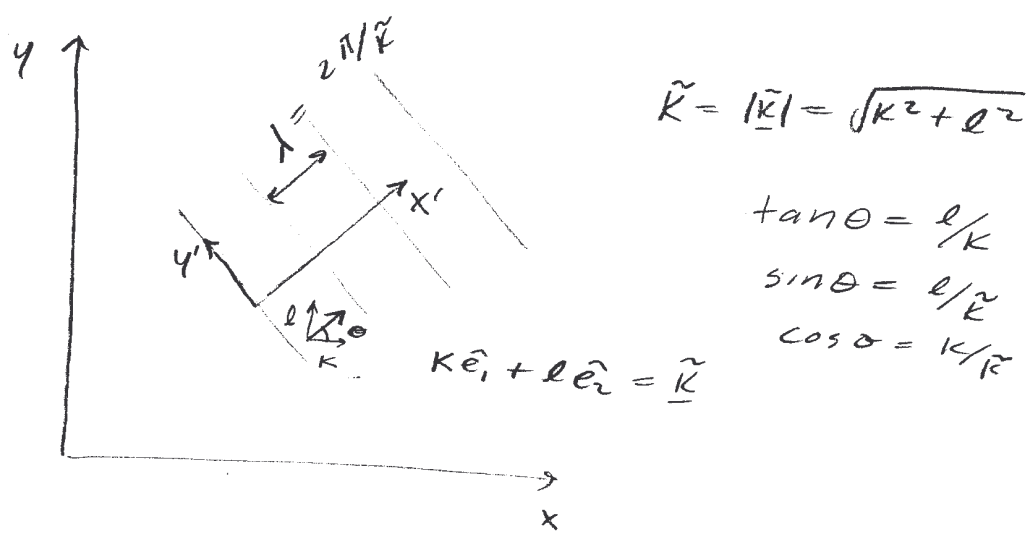 y
λ = 2π/k̃
x'
y'
l
θ
k
k ê₁ + l ê₂ = k̃
x
k̃ = |k̃| = √k² + l²
tanθ = l/k
sinθ = l/k̃
cosθ = k/k̃